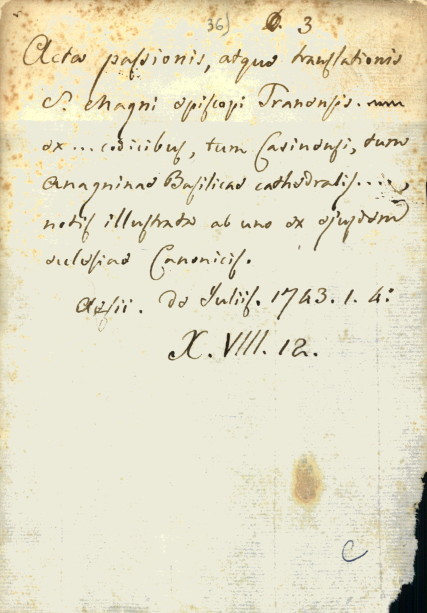 36) D. 3
Acta passionis, atque translationis
S. Magni episcopi Tranensis. num
ex... codicibus, tum Casinensi, tum
Anagninae Basilicae cathedralis....,
notis illustrata ab uno ex ejusdem
ecclesiae Canonicis.
Aesii. de Juliis. 1743. 1. 4:
X. VIII. 12.
C